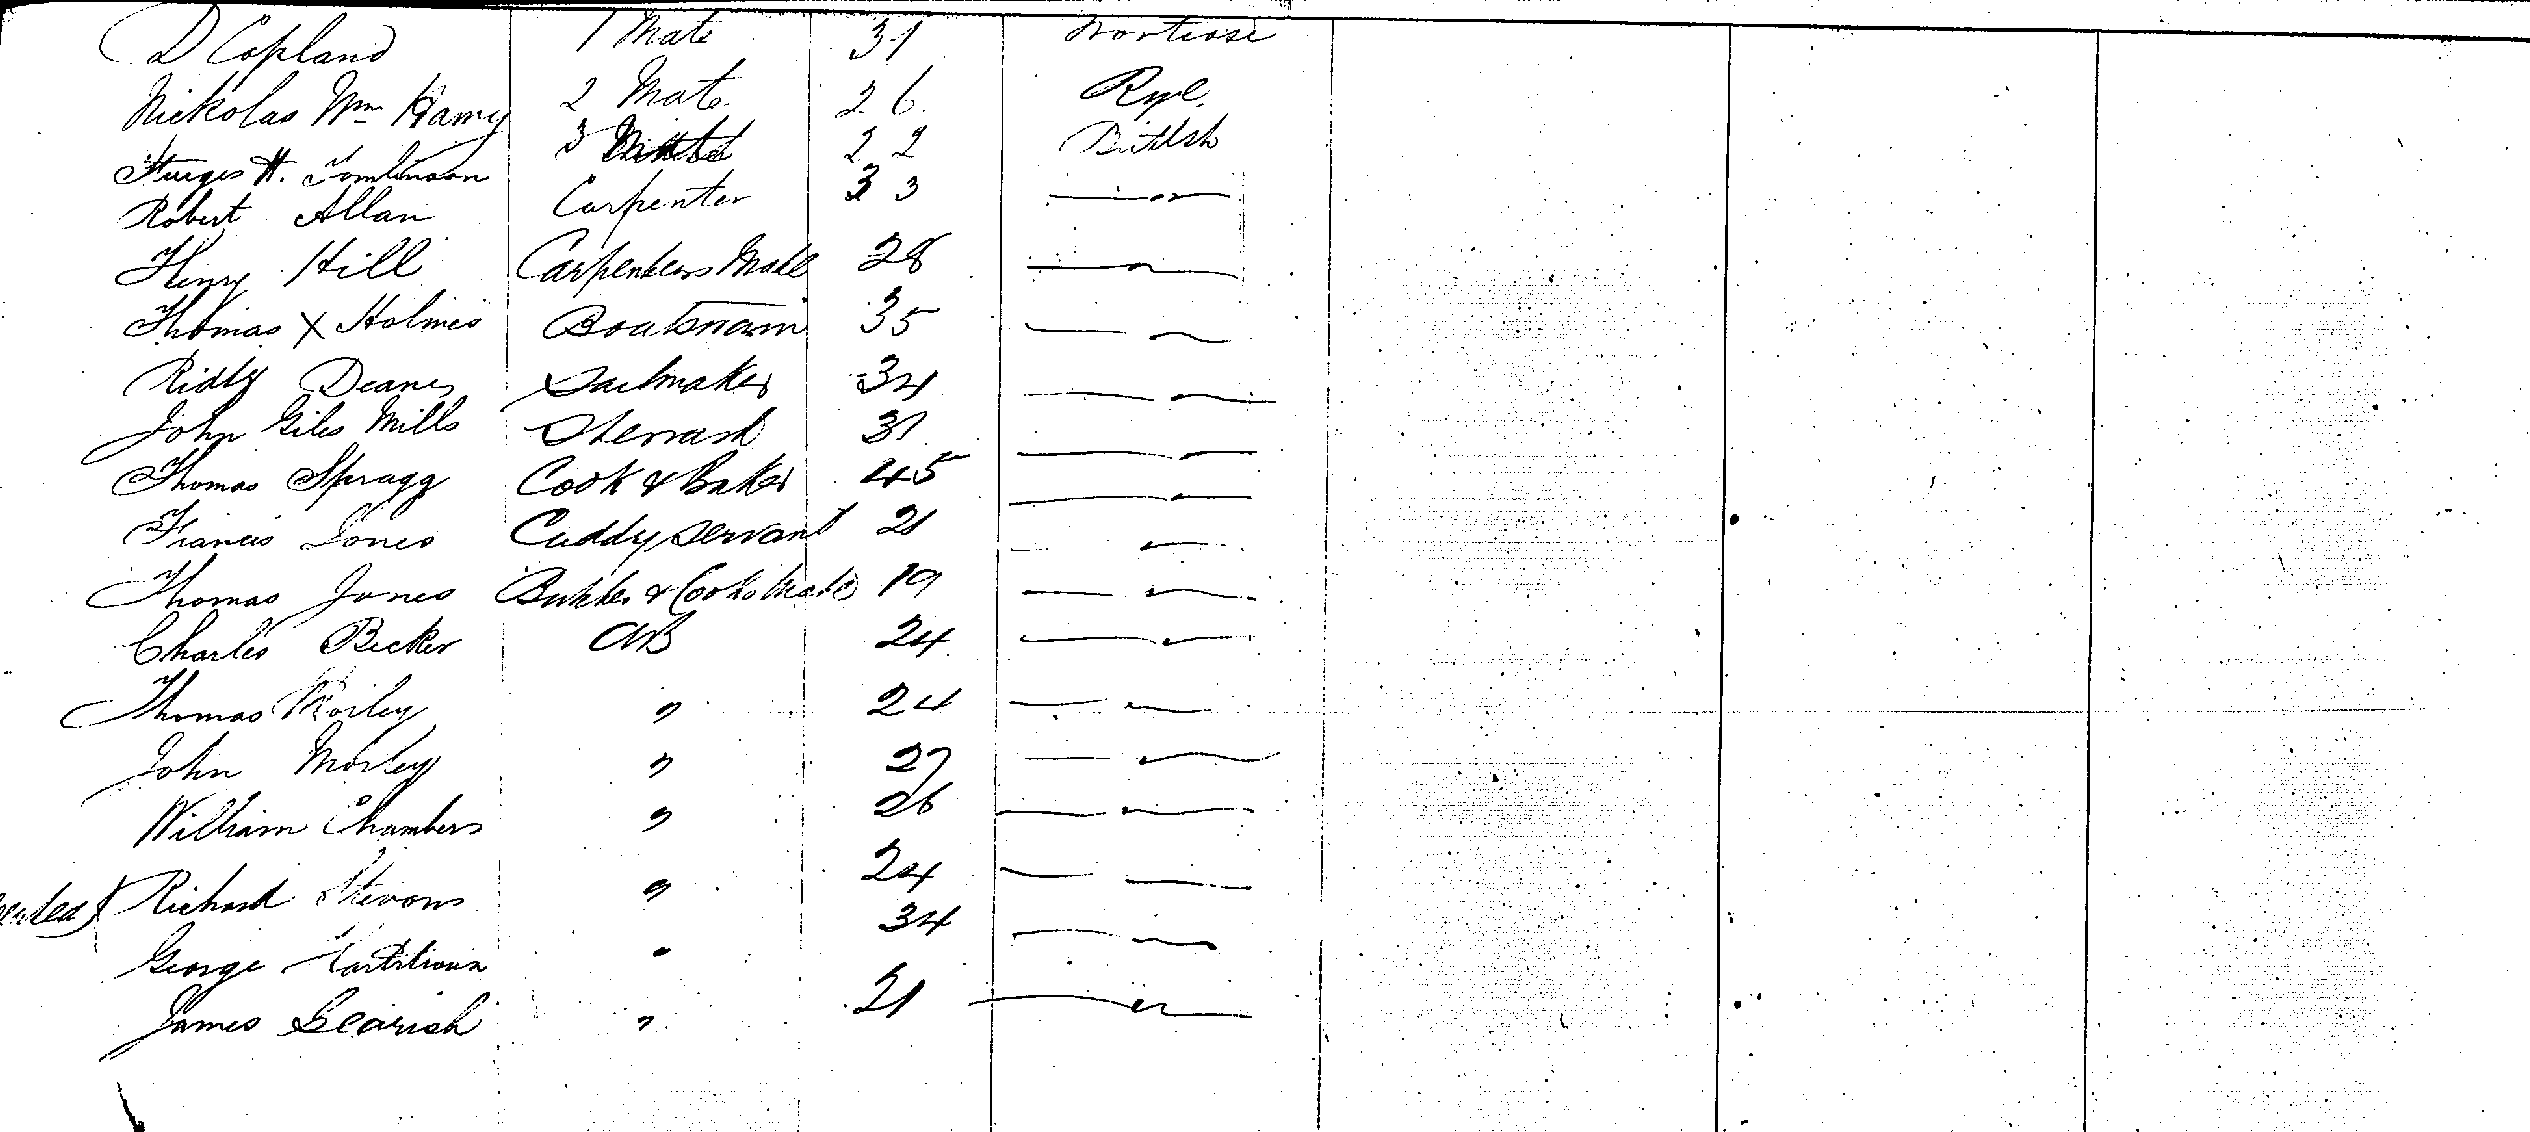 D Copland 1 Mate 31 Montrose
Nickolas Wm Hamy 2 Mate 26 Rye.
Sturges H. Tomlinson 3 Mate 22 British
Robert Allan Carpenter 33 — " —
Henry Hill Carpenters Mate 28 — " —
Thomas X Holmes Boatswain 35 — " —
Ridly Deanes Sailmaker 34 — " —
John Giles Mills Steward 31 — " —
Thomas Spragg Cook & Baker 45 — " —
Francis Jones Cuddy Servant 21 — " —
Thomas Jones Butcher & Cooks Mate 19 — " —
Charles Becker AB 24 — " —
Thomas Morley " 24 — " —
John Morley " 27 — " —
William Chambers " 26 — " —
Richard Stevens " 24 — " —
George " 34 — " —
James " 21 — " —